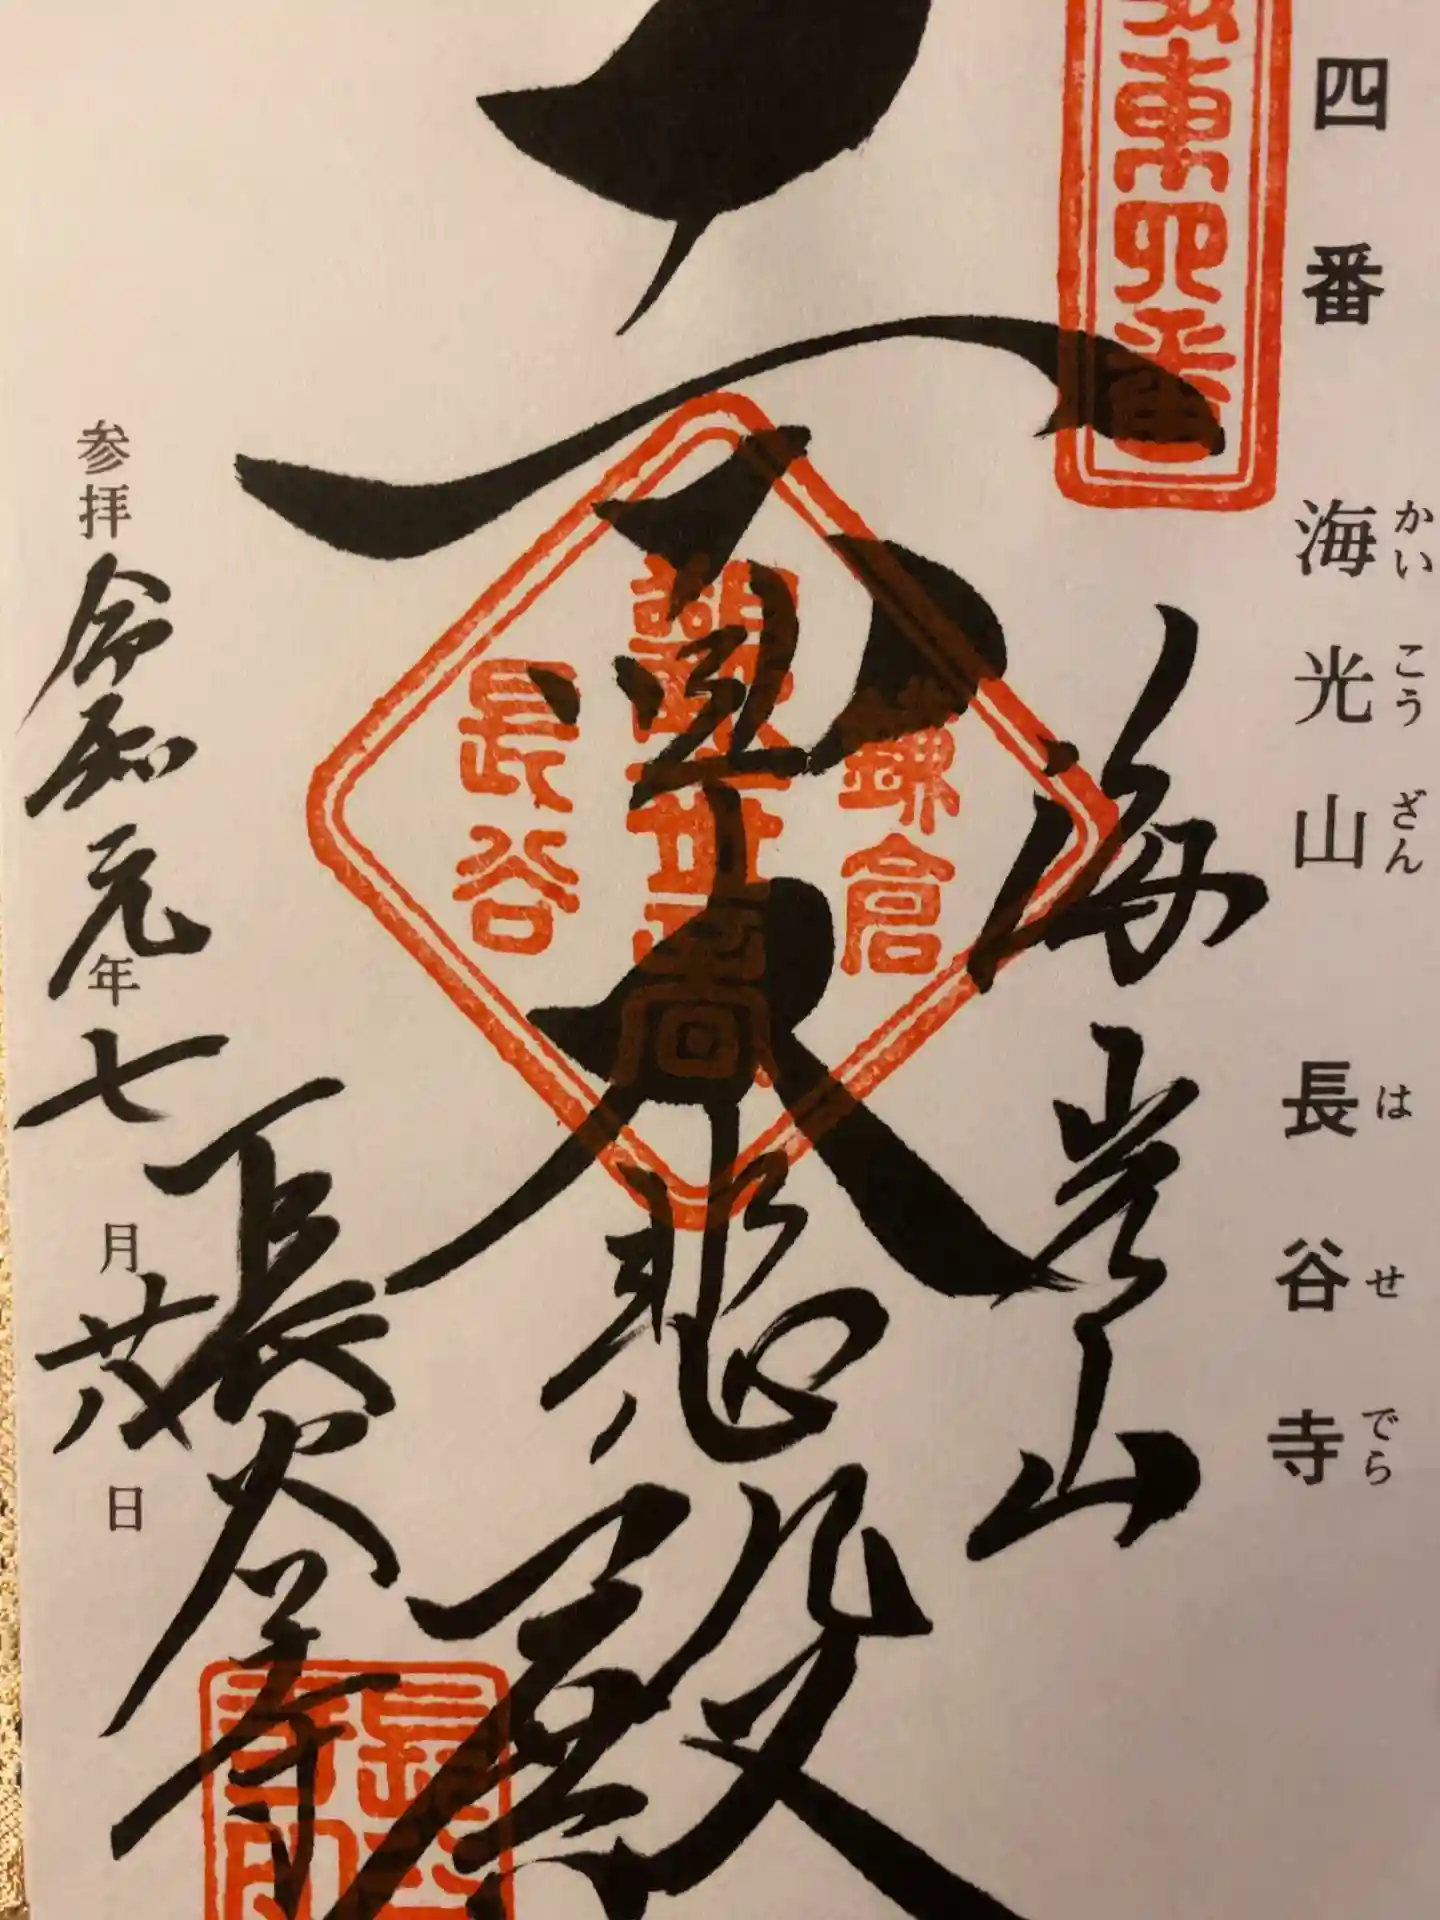 四番 海光山 長谷寺
かいこうざん はせでら
東四番
海光山
鎌倉
観世音
長谷
大悲殿
長谷寺
参拝 令和元年七月廿八日